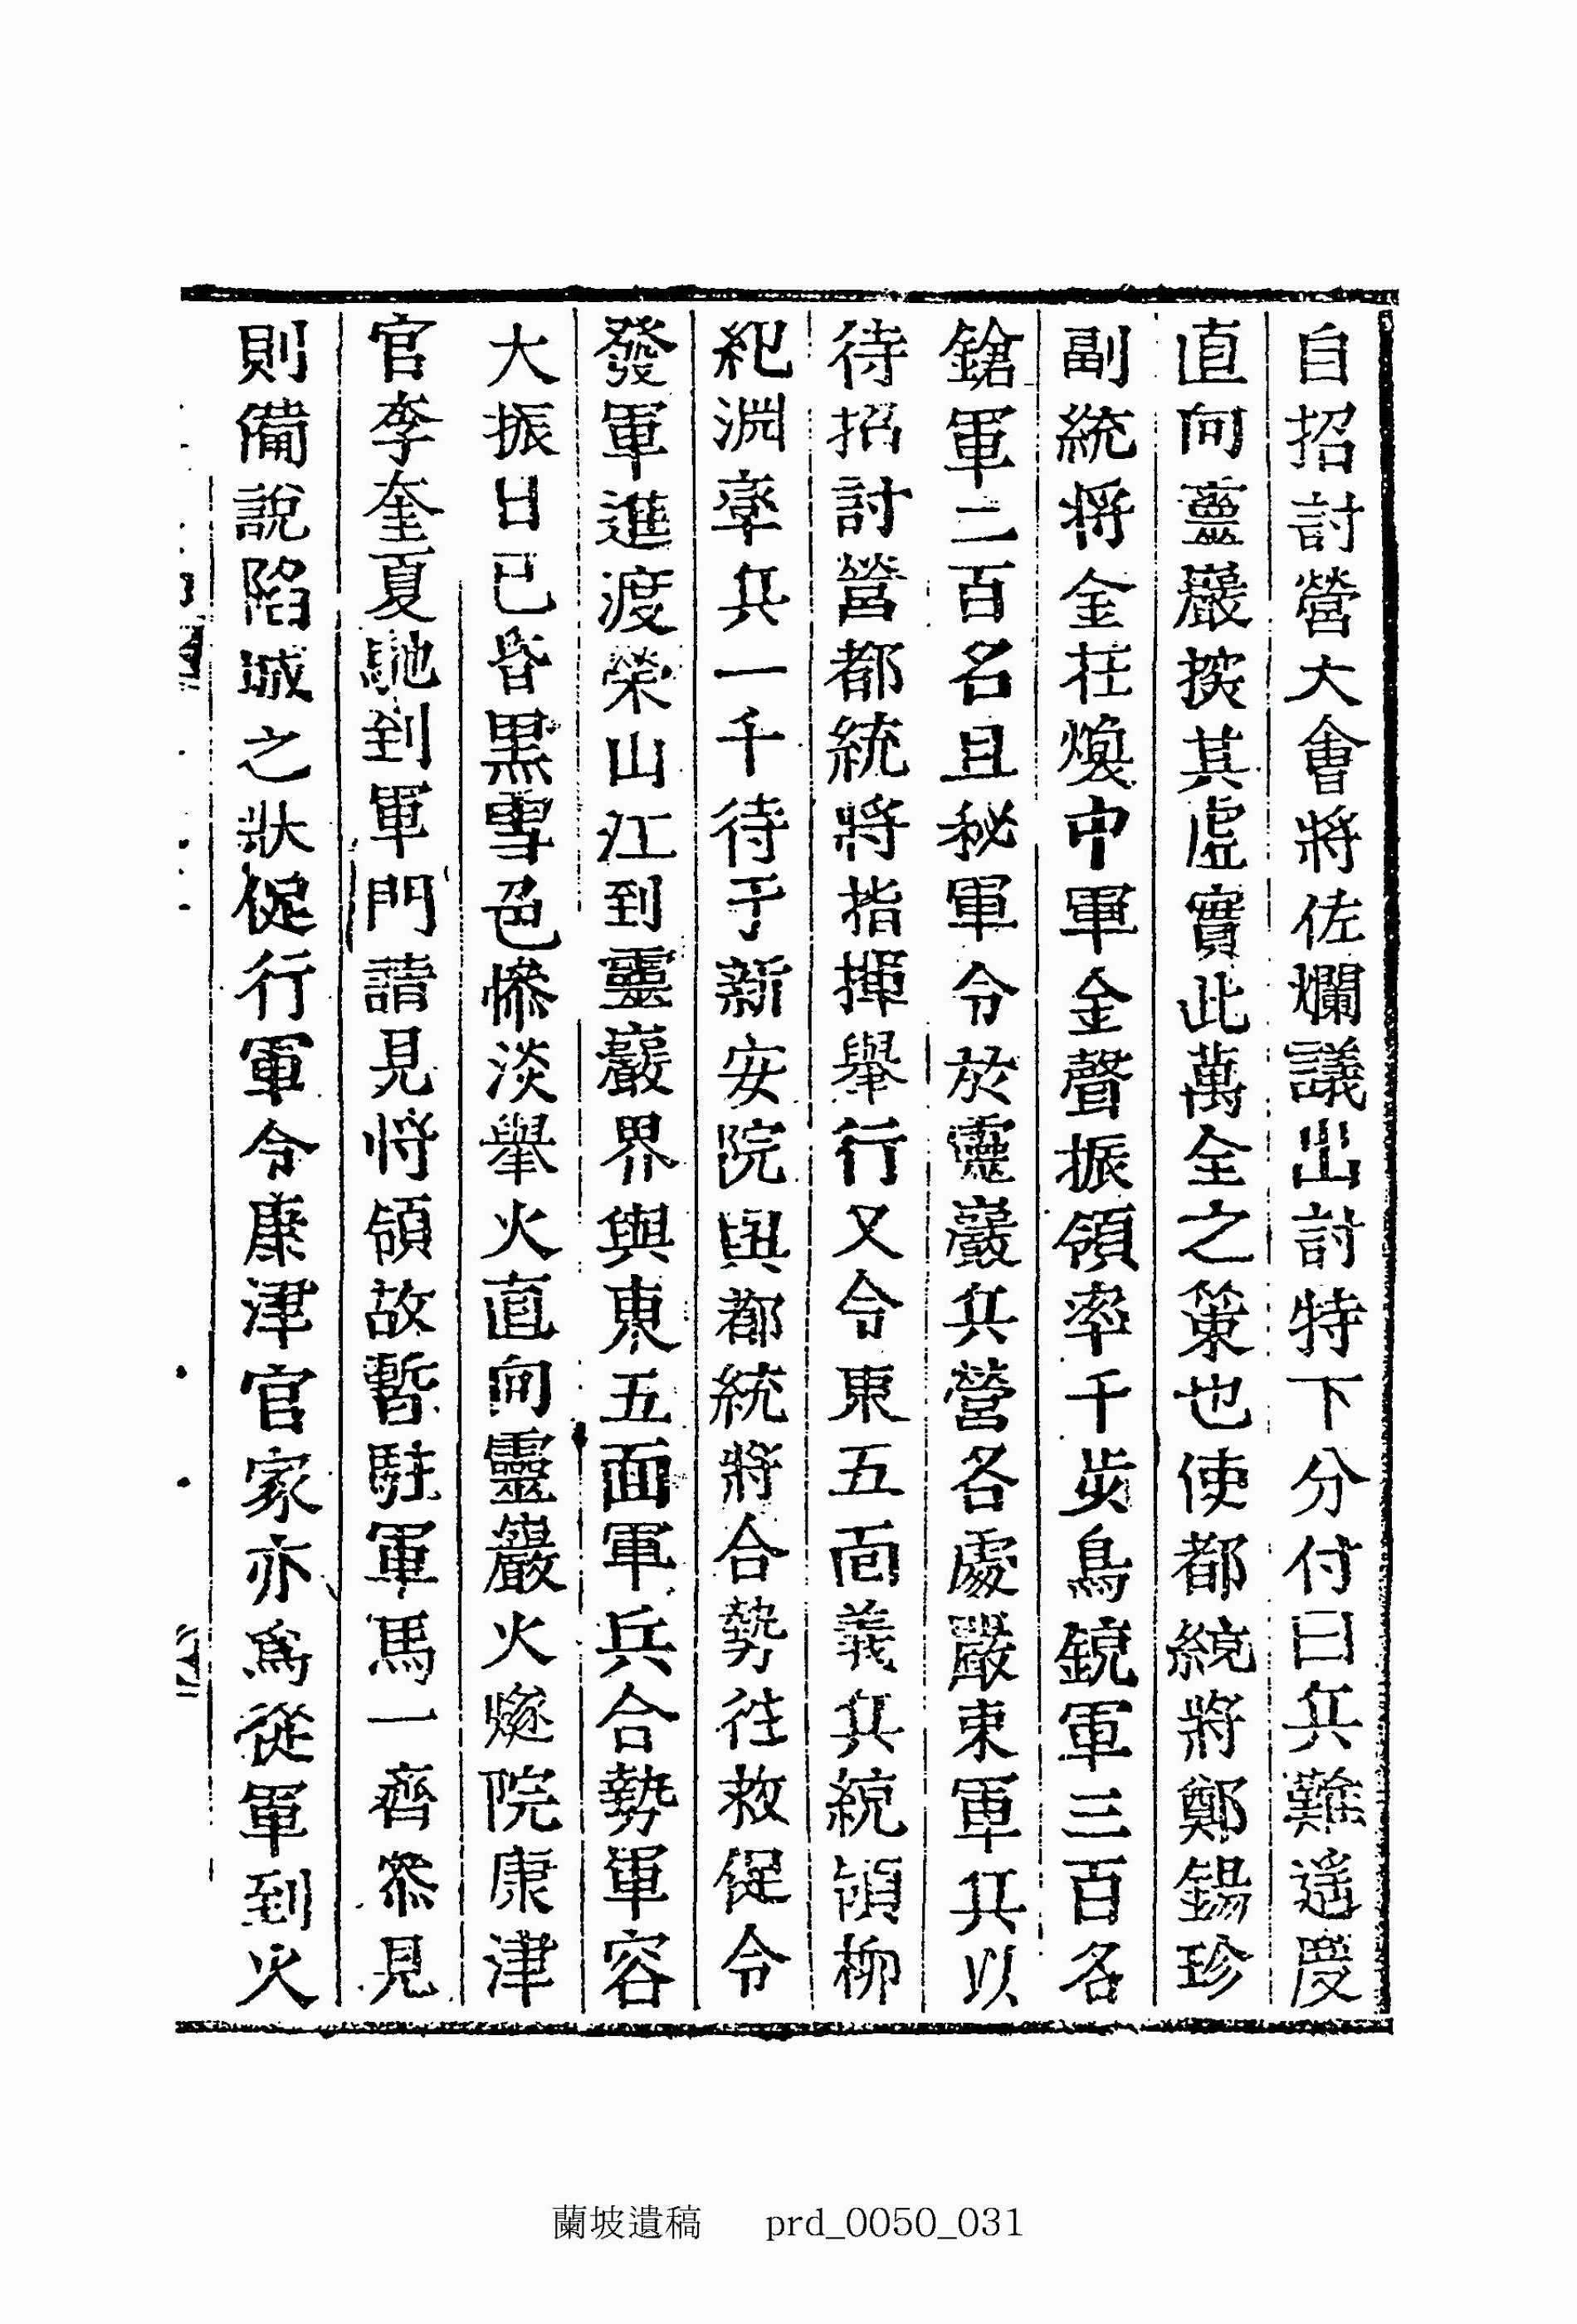 自招討營大會將佐爛議出討特下分付曰兵難遙度
直向靈巖揆其虛實此萬全之策也使都統將鄭錫珍
副統將金在煥中軍金聲振領率千步鳥銃軍三百名
鎗軍二百名且秘軍令於靈巖兵營各處嚴束軍兵以
待招討營都統將指揮擧行又令東五面義兵統領柳
紀淵率兵一千待于新安院與都統將合勢往救促令
發軍進渡榮山江到靈巖界與東五面軍兵合勢軍容
大振日已昏黑雪色慘淡擧火直向靈巖火燧院康津
官李奎夏馳到軍門請見將領故暫駐軍馬一齊叅見
則備說陷城之狀促行軍令康津官家亦爲從軍到火
蘭坡遺稿 prd_0050_031